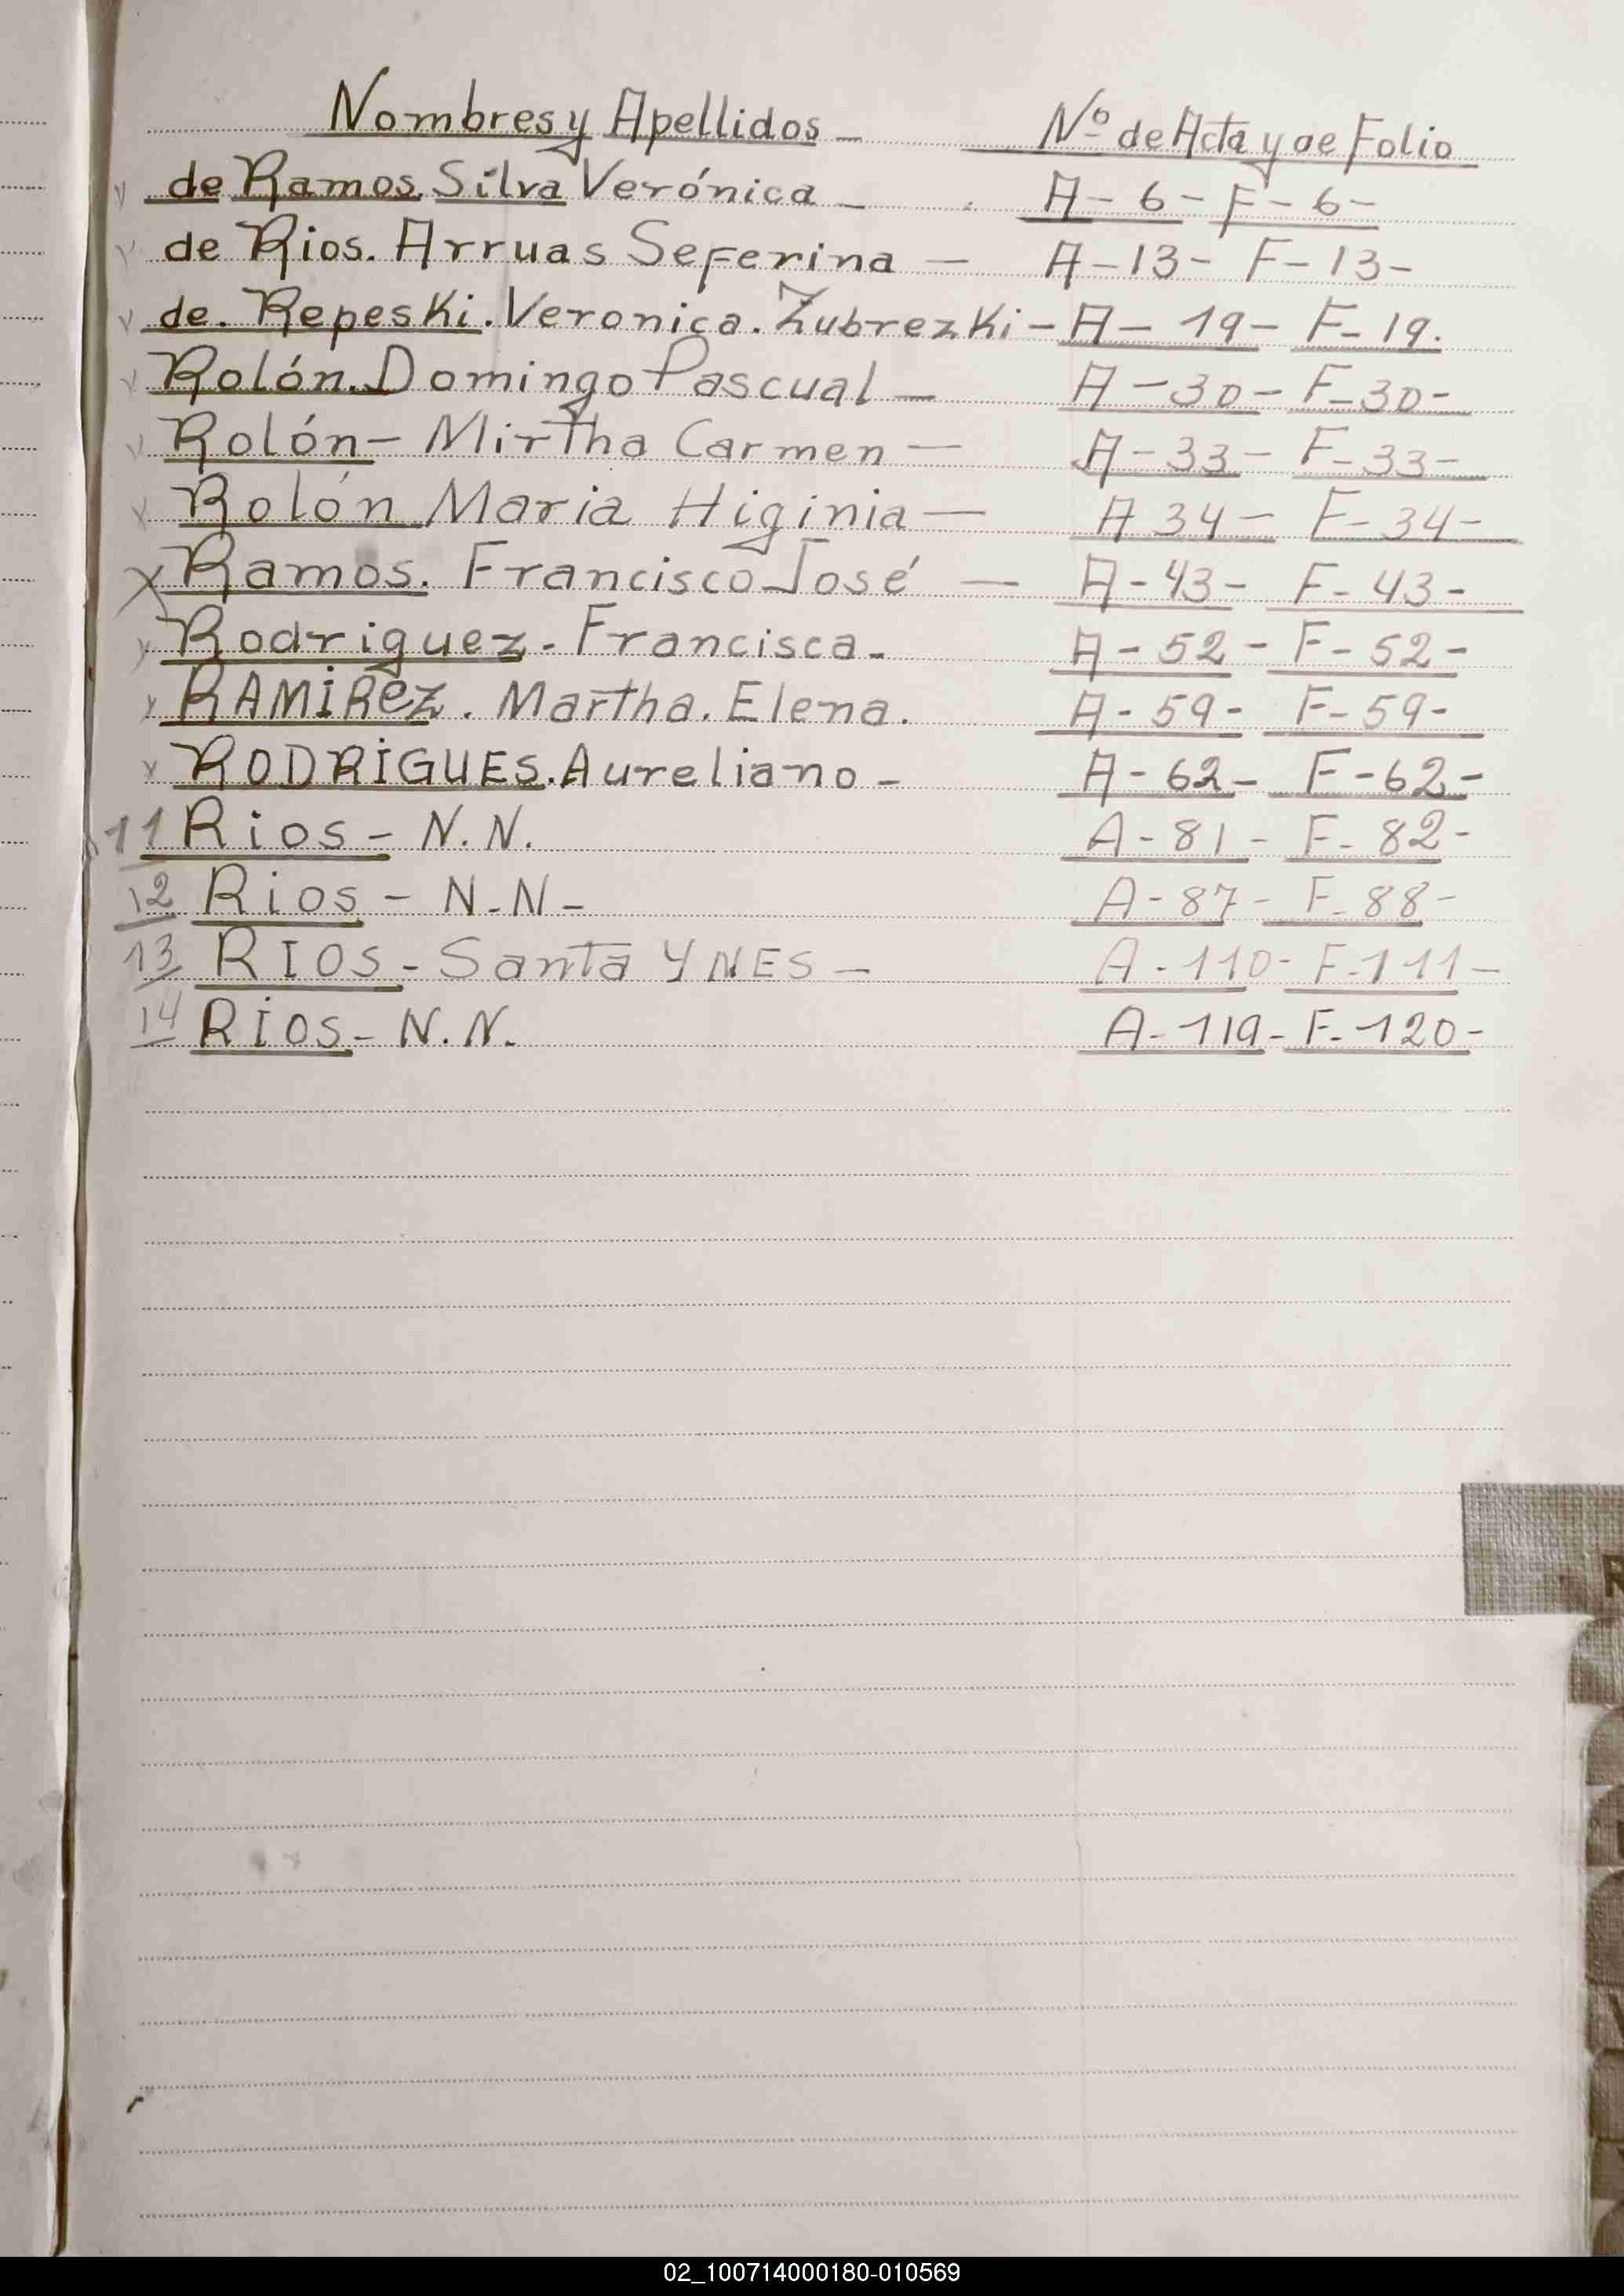 Nombres y Apellidos - Nº de Acta y de Folio
v de Ramos. Silva Verónica - A - 6 - F - 6 -
v de Rios. Arruas Seferina - A - 13 - F - 13 -
v de. Repeski. Veronica. Zubrezki - A - 19 - F - 19.
v Rolón. Domingo Pascual - A - 30 - F - 30 -
v Rolón - Mirtha Carmen - A - 33 - F - 33 -
v Rolón Maria Higinia - A 34 - F - 34 -
X Ramos. Francisco José - A - 43 - F - 43 -
v Rodriguez - Francisca - A - 52 - F - 52 -
v RAMIREZ. Martha. Elena. A - 59 - F - 59 -
v RODRIGUES. Aureliano - A - 62 - F - 62 -
11 Rios - N.N. A - 81 - F - 82 -
12 Rios - N-N - A - 87 - F - 88 -
13 RIOS - Santa YNES - A - 110 - F - 111 -
14 RIOS - N.N. A - 119 - F - 120 -
02_100714000180-010569